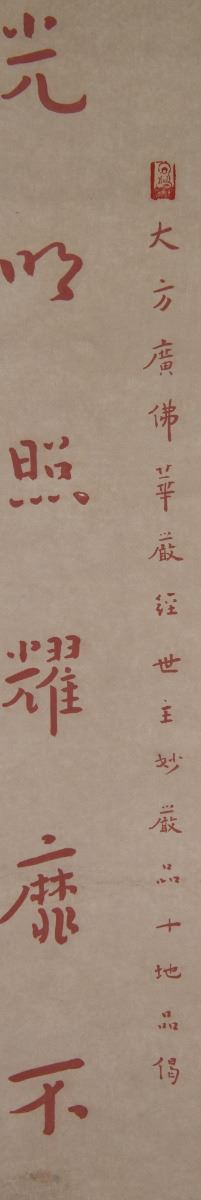 大方廣佛華嚴經世主妙嚴品十地品偈
光明照耀靡不